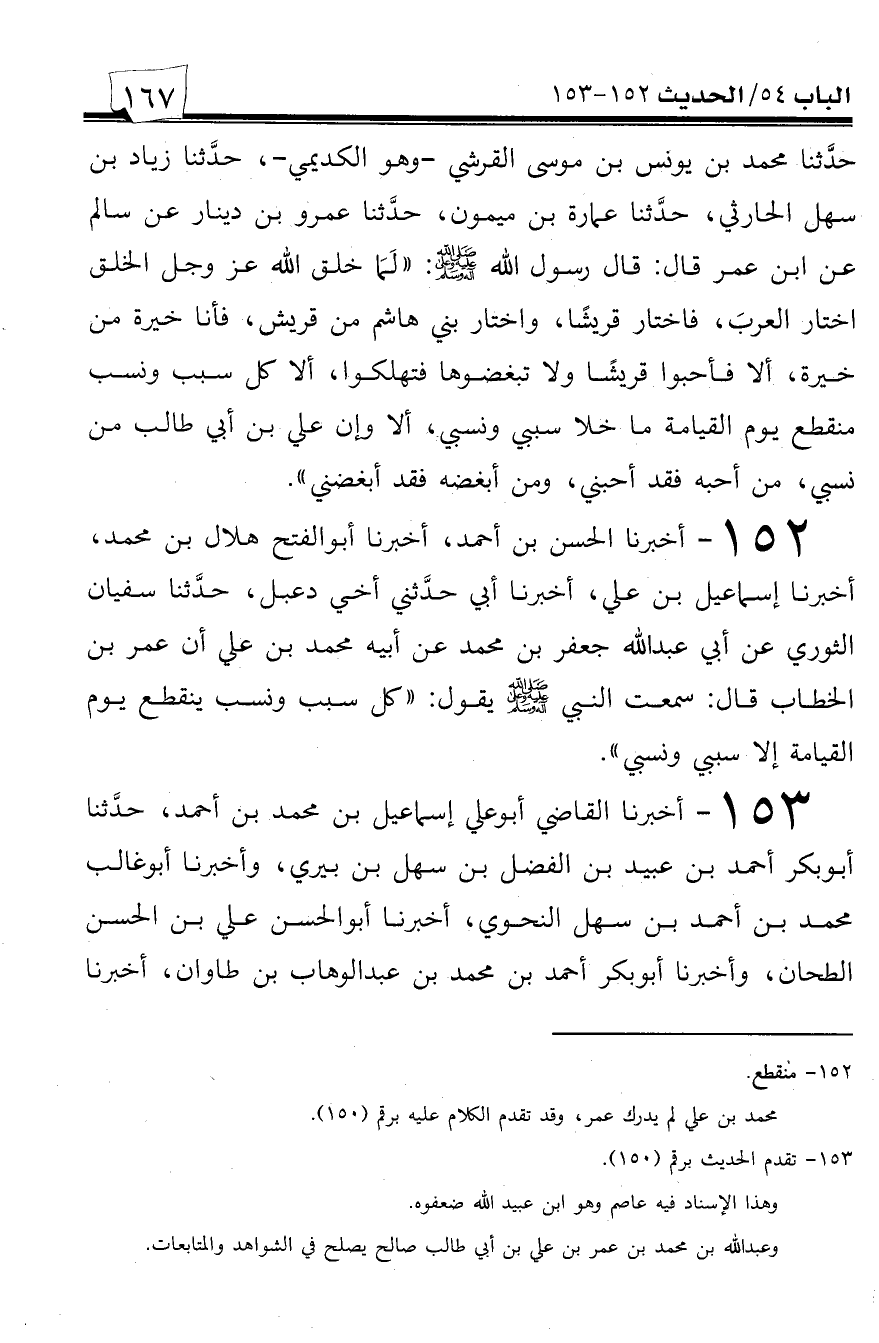 الباب ٥٤/ الحديث ١٥٢-١٥٣
١٦٧
حدَّثنا محمد بن يونس بن موسى القرشي -وهو الكديمي-، حدَّثنا زياد بن
سهل الحارثي، حدَّثنا عمارة بن ميمون، حدَّثنا عمرو بن دينار عن سالم
عن ابن عمر قال: قال رسول الله ﷺ: «لَمَا خلق الله عز وجل الخلق
اختار العربَ، فاختار قريشًا، واختار بني هاشم من قريش، فأنا خيرة من
خيرة، ألا فأحبوا قريشًا ولا تبغضوها فتهلكوا، ألا كل سبب ونسب
منقطع يوم القيامة ما خلا سببي ونسبي، ألا وإن علي بن أبي طالب من
نسبي، من أحبه فقد أحبني، ومن أبغضه فقد أبغضني».
١٥٢- أخبرنا الحسن بن أحمد، أخبرنا أبوالفتح هلال بن محمد،
أخبرنا إسماعيل بن علي، أخبرنا أبي حدَّثني أخي دعبل، حدَّثنا سفيان
الثوري عن أبي عبدالله جعفر بن محمد عن أبيه محمد بن علي أن عمر بن
الخطاب قال: سمعت النبي ﷺ يقول: «كل سبب ونسب ينقطع يوم
القيامة إلا سببي ونسبي».
١٥٣- أخبرنا القاضي أبوعلي إسماعيل بن محمد بن أحمد، حدَّثنا
أبوبكر أحمد بن عبيد بن الفضل بن سهل بن بيري، وأخبرنا أبوغالب
محمد بن أحمد بن سهل النحوي، أخبرنا أبوالحسن علي بن الحسن
الطحان، وأخبرنا أبوبكر أحمد بن محمد بن عبدالوهاب بن طاوان، أخبرنا
١٥٢- منقطع.
محمد بن علي لم يدرك عمر، وقد تقدم الكلام عليه برقم (١٥٠).
١٥٣- تقدم الحديث برقم (١٥٠).
وهذا الإسناد فيه عاصم وهو ابن عبيد الله ضعفوه.
وعبدالله بن محمد بن عمر بن علي بن أبي طالب صالح يصلح في الشواهد والمتابعات.